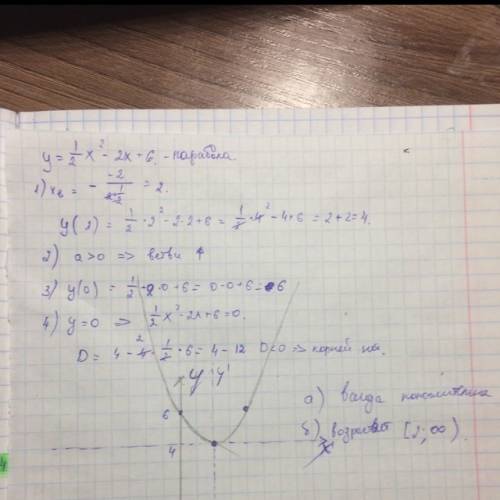 y = 1/2 x² - 2x + 6. - парабола.
1) xв = - -2/(2·1/2) = 2.
y(2) = 1/2 · 2² - 2·2 + 6 = 1/2 · 4 - 4 + 6 = 2 + 2 = 4.
2) a > 0 => ветви ↑
3) y(0) = 1/2 · 0 · 0 + 6 = 0 - 0 + 6 = 6
4) y = 0 => 1/2 x² - 2x + 6 = 0.
D = 4 - 4 · 1/2 · 6 = 4 - 12 D<0 => корней нет.
y y'
а) всегда положительна
6
б) возрастает [2; ∞)
4
x'
4